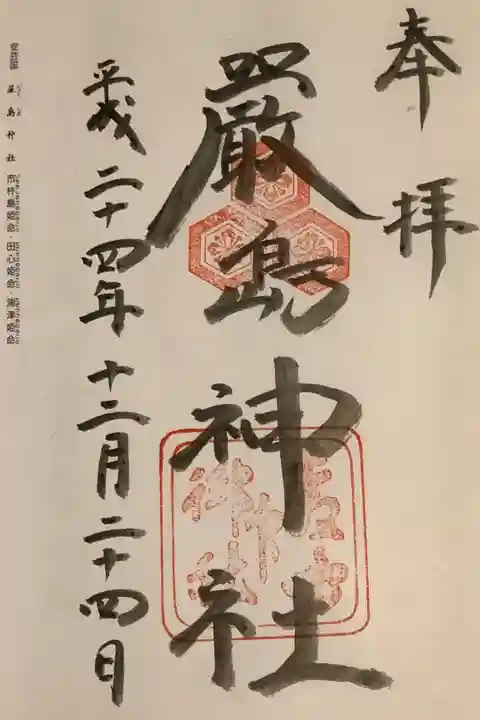 奉拝
嚴島神社
平成二十四年十二月二十四日
安芸国 嚴島神社 市杵島姫命・田心姫命・湍津姫命